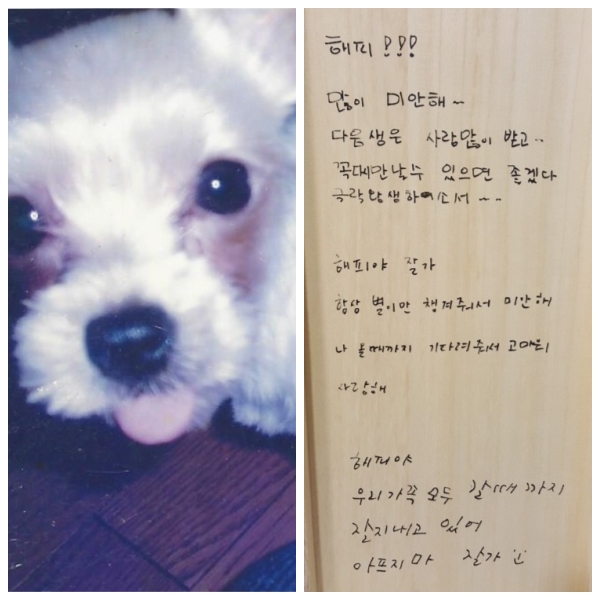 해피!!!
많이 미안해~
다음생은 사랑많이 받고..
꼭다시만날수 있으면 좋겠다
극락왕생하여소서~~
해피야 잘가
항상 별이만 챙겨줘서 미안해
나 올때까지 기다려줘서 고마워
사랑해
해피야
우리가족 모두 갈때까지
잘지내고 있어
아프지마 잘가